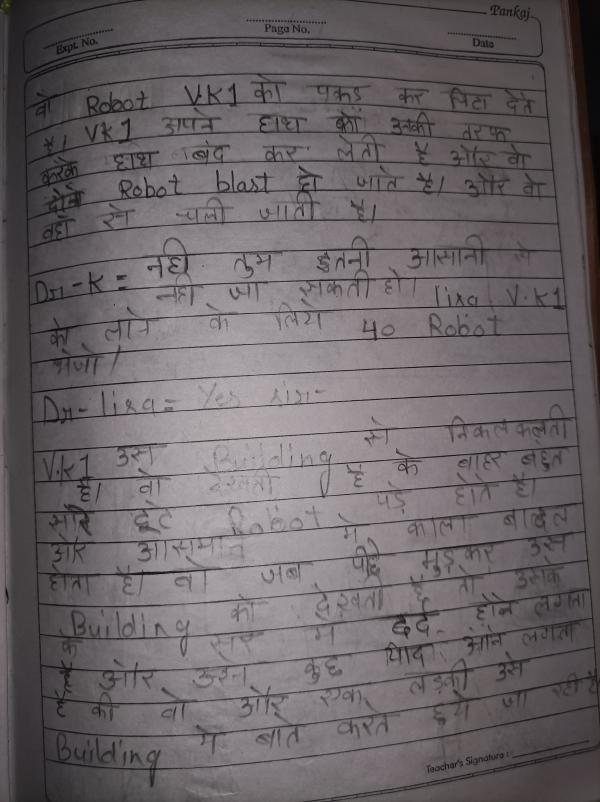 Pankaj
Expt. No.
Page No.
Date
वो Robot V.K1 को पकड़ कर लिटा देते
है। VK1 अपने हाथ को उनकी तरफ
करके हाथ बंद कर लेती है और वो
दोनो Robot blast हो जाते है। और वो
वहाँ से चली जाती है।
Dr-K = नही तुम इतनी आसानी से
नही जा सकती हो। lixa V.K1
को लाने के लिये 40 Robot
भेजो।
Dr-lixa = Yes sir-
V.K1 उस Building से निकलकलती
है। वो देखती है के बाहर बहुत
सारे टुटे Robot पड़े होते है।
और आसमान मे काला बादल
होता है। वो जब पीछे मुड़कर उस
Building को देखती है तो उसके
के सर मे दर्द होने लगता
है और उसे कुछ याद आने लगता
है की वो और एक लड़की उस
Building मे बाते करते हुये जा रही है
Teacher's Signature :